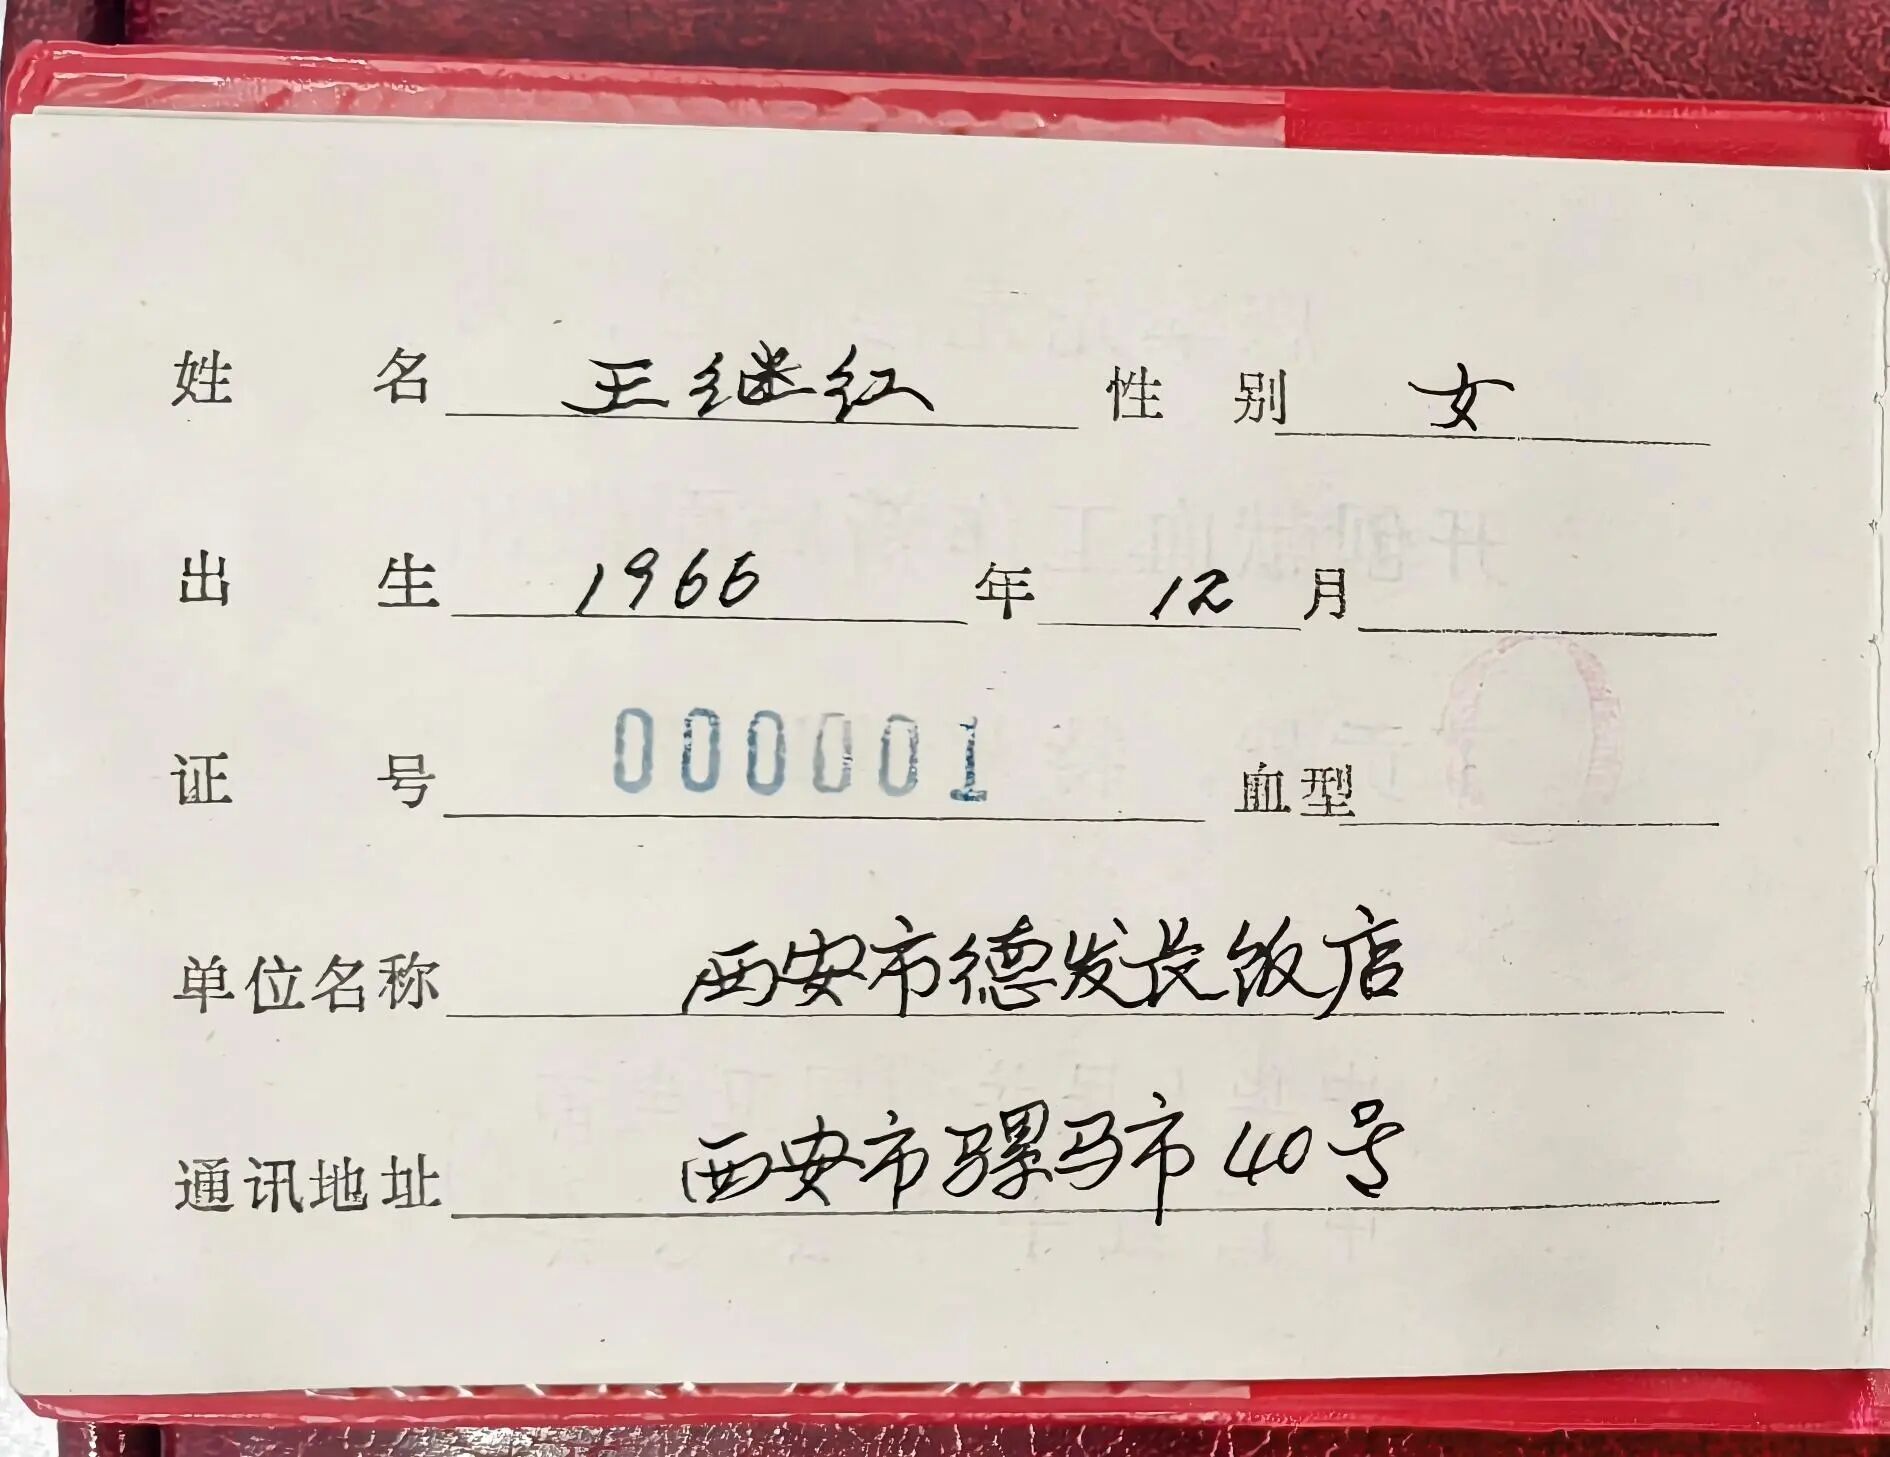 姓名 王继红 性别 女
出生 1965 年 12 月
证号 000001 血型
单位名称 西安市德发长饭店
通讯地址 西安市骡马市40号